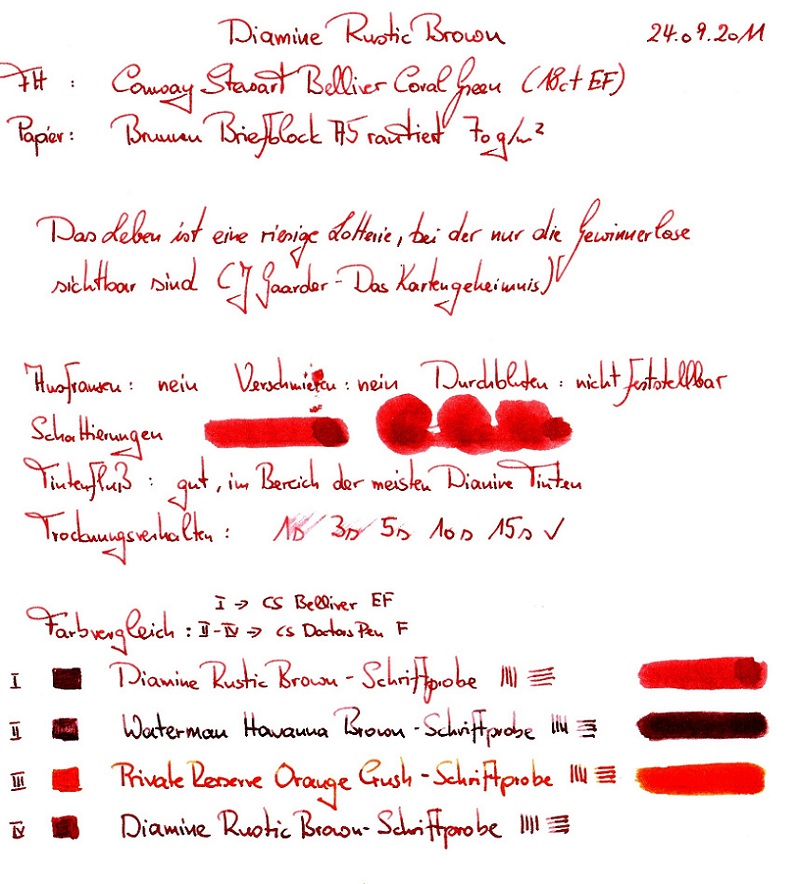 Diamine Rustic Brown 24.09.2011
FH : Conway Stewart Belliver Coral Green (18ct EF)
Papier: Brunnen Briefblock A5 rautiert 70 g/m²
Das Leben ist eine riesige Lotterie, bei der nur die Gewinnerlose
sichtbar sind (J Gaarder - Das Kartengeheimnis)
Ausfransen: nein Verschmieren: nein Durchbluten: nicht feststellbar
Schattierungen
Tintenfluß : gut, im Bereich der meisten Diamine Tinten
Trocknungsverhalten : 1s 3s 5s 10s 15s ✓
I → CS Belliver EF
Farbvergleich : II-IV → CS Doctors Pen F
I Diamine Rustic Brown - Schriftprobe
II Waterman Havanna Brown - Schriftprobe
III Private Reserve Orange Crush - Schriftprobe
IV Diamine Rustic Brown - Schriftprobe